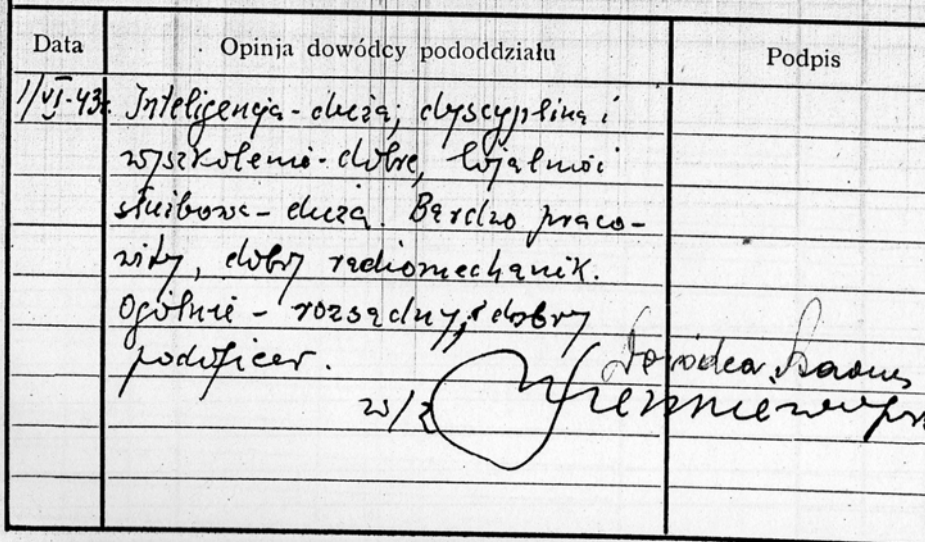 Data Opinja dowódcy pododdziału Podpis
1/VI-43r. Inteligencja - duża, dyscyplina i
wyszkolenie - dobre, lojalność
służbowa - duża. Bardzo praco-
wity, dobry radiomechanik.
Ogólnie - rozsądny, i dobry
podoficer.
Dowódca
w/z